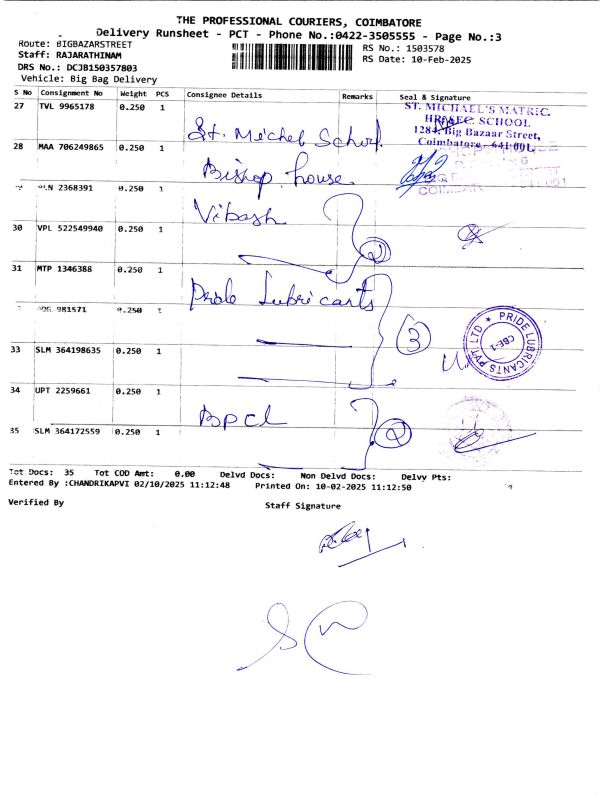 THE PROFESSIONAL COURIERS, COIMBATORE
Delivery Runsheet - PCT - Phone No.:0422-3505555 - Page No.:3
Route: BIGBAZARSTREET
RS No.: 1503578
Staff: RAJARATHINAM
RS Date: 10-Feb-2025
DRS No.: DCJB150357803
Vehicle: Big Bag Delivery
S No Consignment No Weight PCS Consignee Details Remarks Seal & Signature
27 TVL 9965178 0.250 1 St. Michel School
ST. MICHAEL'S MATRIC.
HR.SEC. SCHOOL
1284, Big Bazaar Street,
Coimbatore - 641 001.
28 MAA 706249865 0.250 1 Bishop house
2368391 0.250 1 Vibash
30 VPL 522549940 0.250 1 2
31 MTP 1346388 0.250 1 Pride Lubricants
981571 0.250 1 3
PRIDE LUBRICANTS PVT LTD * CBE-1
33 SLM 364198635 0.250 1
34 UPT 2259661 0.250 1 Bpcl 2
35 SLM 364172559 0.250 1
Tot Docs: 35 Tot COD Amt: 0.00 Delvd Docs: Non Delvd Docs: Delvy Pts:
Entered By :CHANDRIKAPVI 02/10/2025 11:12:48 Printed On: 10-02-2025 11:12:50
Verified By
Staff Signature